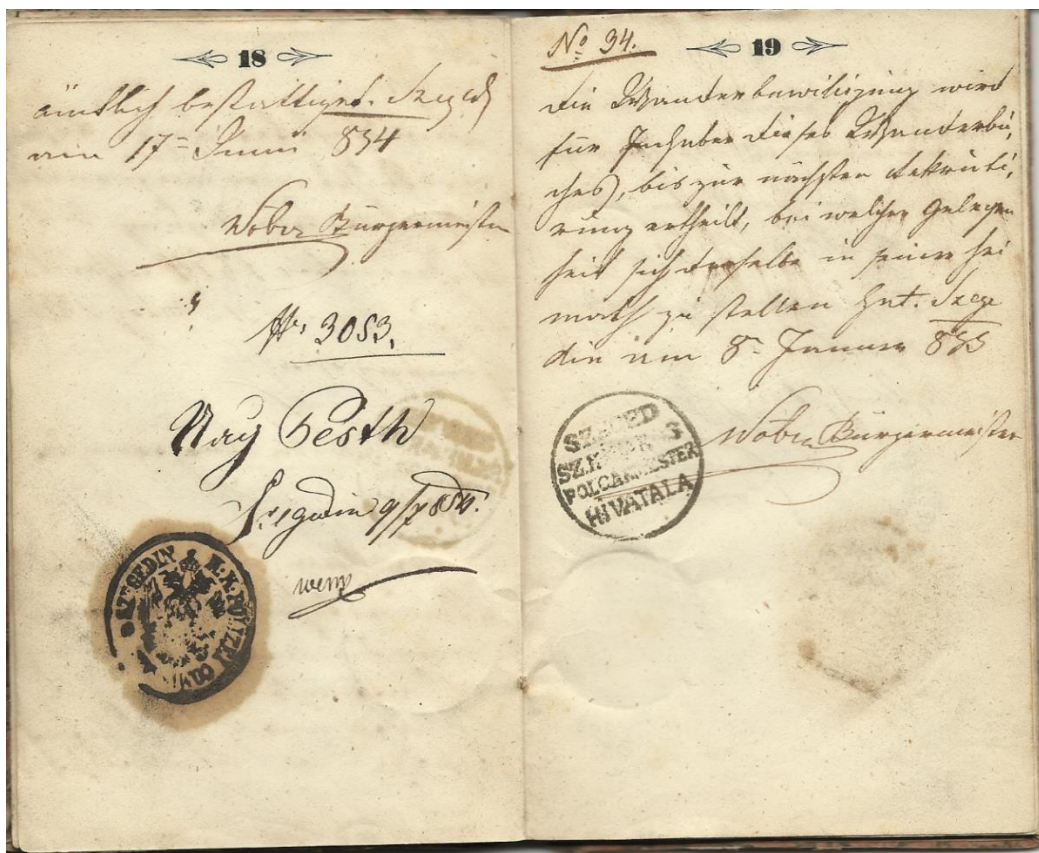 18
ämtlich bestättiget. Szeged
am 17= Juni 854
Wöber Bürgermeister
No. 3053.
Nach Pesth
Szegedin 9/7 854.
SZEGEDIN K.K. POLIZEI COM
No 94.
19
Die Wanderbewilligung wird
für Inhaber dieses Wanderbu,
ches), bis zur nächsten Rekruti,
rung ertheilt, bei welcher Gelegen
heit sich derselbe in seiner Hei
math zu stellen hat. Szege
din am 8. Januar 855
Wöber Bürgermeister
SZEGED
SZ. K.
POLGÁRMESTER
HIVATALA